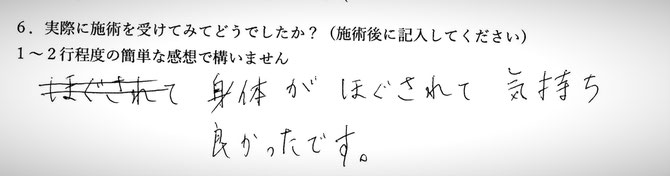 6．実際に施術を受けてみてどうでしたか？（施術後に記入してください）
1～2行程度の簡単な感想で構いません
ほぐされて 身体が ほぐされて 気持ち
良かったです。